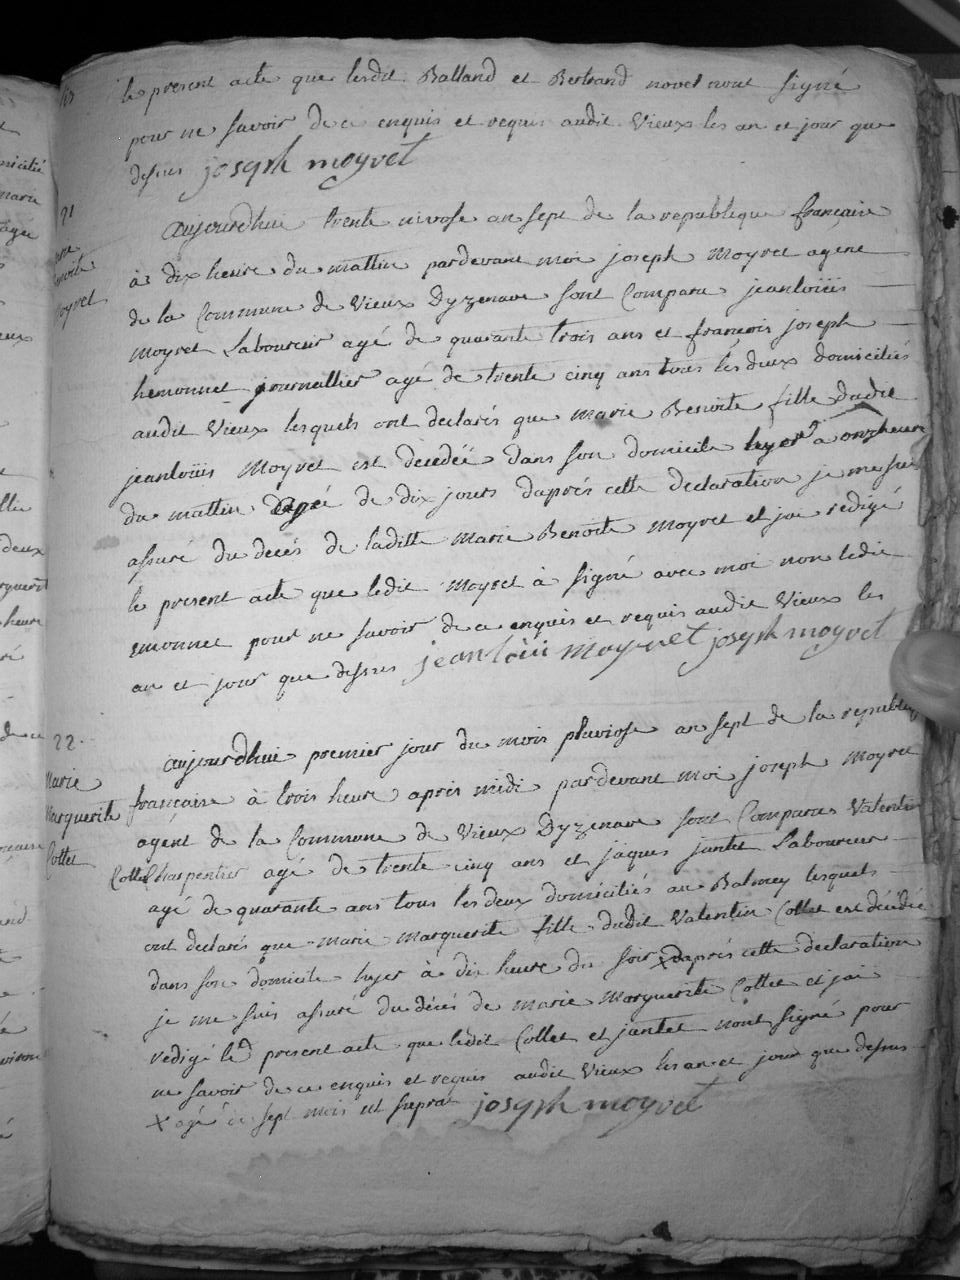 le present acte que lesdit Balland et Bertrand novel nont signé
pour ne savoir de ce enquis et requis audit Vieux les an et jour que
dessus joseph moyret
21
aujourdhui trente nivose an sept de la republique française
à dix heure du mattin pardevant moi joseph Moyret agent
de la Commune de Vieux Dyzenave sont Comparu jeanloüis
Moyret Laboureur agé de quarante trois ans et françois joseph
hemonnet journallier age de trente cinq ans tous les deux domiciliés
audit Vieux lesquels ont declarés que marie Benoite fille dudit
jeanloüis Moyret est decedée dans son domicile hyer a onzheure
du mattin agé de dix jours daprés cette declaration je me suis
assuré du decés de laditte Marie Benoite Moyret et jai redigé
le present acte que ledit Moyret à signé avec moi non ledit
emonnet pour ne savoir de ce enquis et requis audit Vieux les
an et jour que dessus jeanloüi moyret joseph moyret
22
Marie
Marguerite
Collet
aujourdhui premier jour du mois pluviose an sept de la republiq
française à trois heure après midi pardevant moi joseph Moyret
agent de la Commune de Vieux Dyzenave sont Comparus Valentin
Collet Charpentier agé de trente cinq ans et jaques jantet Laboureur
agé de quarante ans tous les deux domiciliés au Balmey lesquels
ont declarés que marie marguerite fille dudit Valentin Collet est décédée
dans son domicile hyer à dix heure du soir X daprés cette declaration
je me suis assuré du décés de marie Marguerite Collet et jai
redigé le present acte que ledit Collet et jantet nont signé pour
ne savoir de ce enquis et requis audit Vieux les an et jour que dessus
X agé de sept mois ut supra joseph moyret